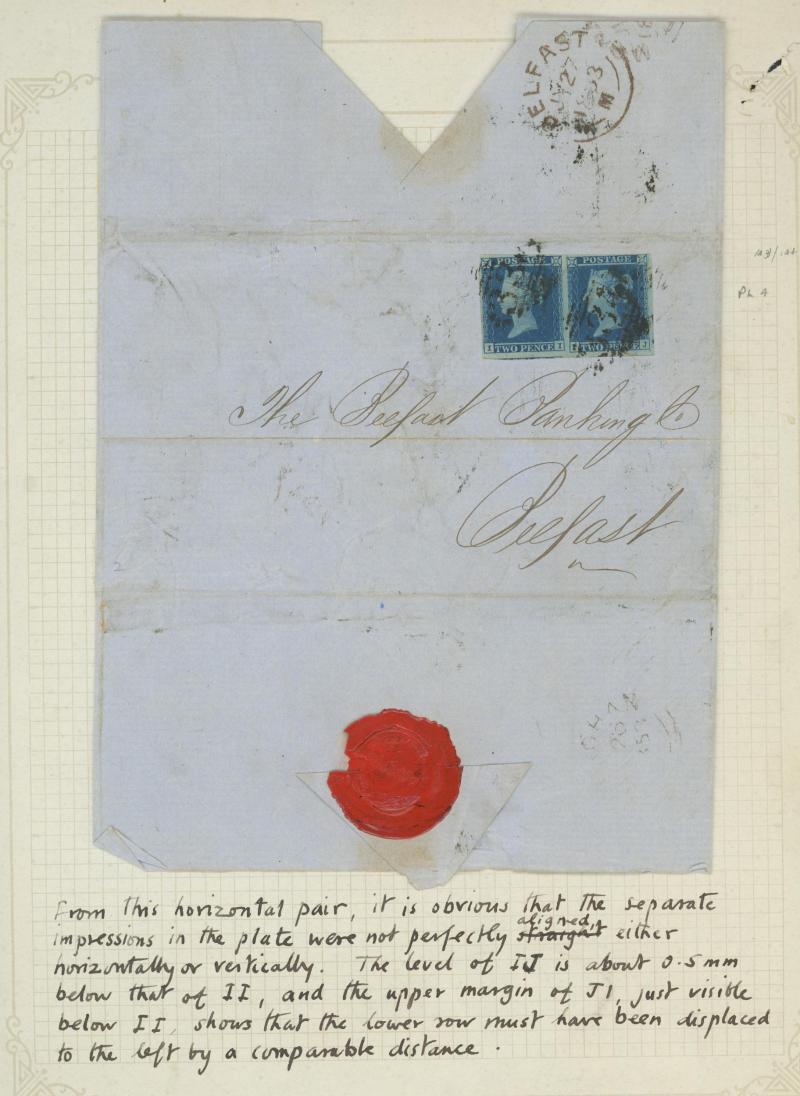 BELFAST
27
POSTAGE POSTAGE
I TWO PENCE I I TWO PENCE J
PL 4
The Belfast Banking Co
Belfast
2
From this horizontal pair, it is obvious that the separate
impressions in the plate were not perfectly straight aligned, either
horizontally or vertically. The level of IJ is about 0.5mm
below that of II, and the upper margin of JI, just visible
below II, shows that the lower row must have been displaced
to the left by a comparable distance.